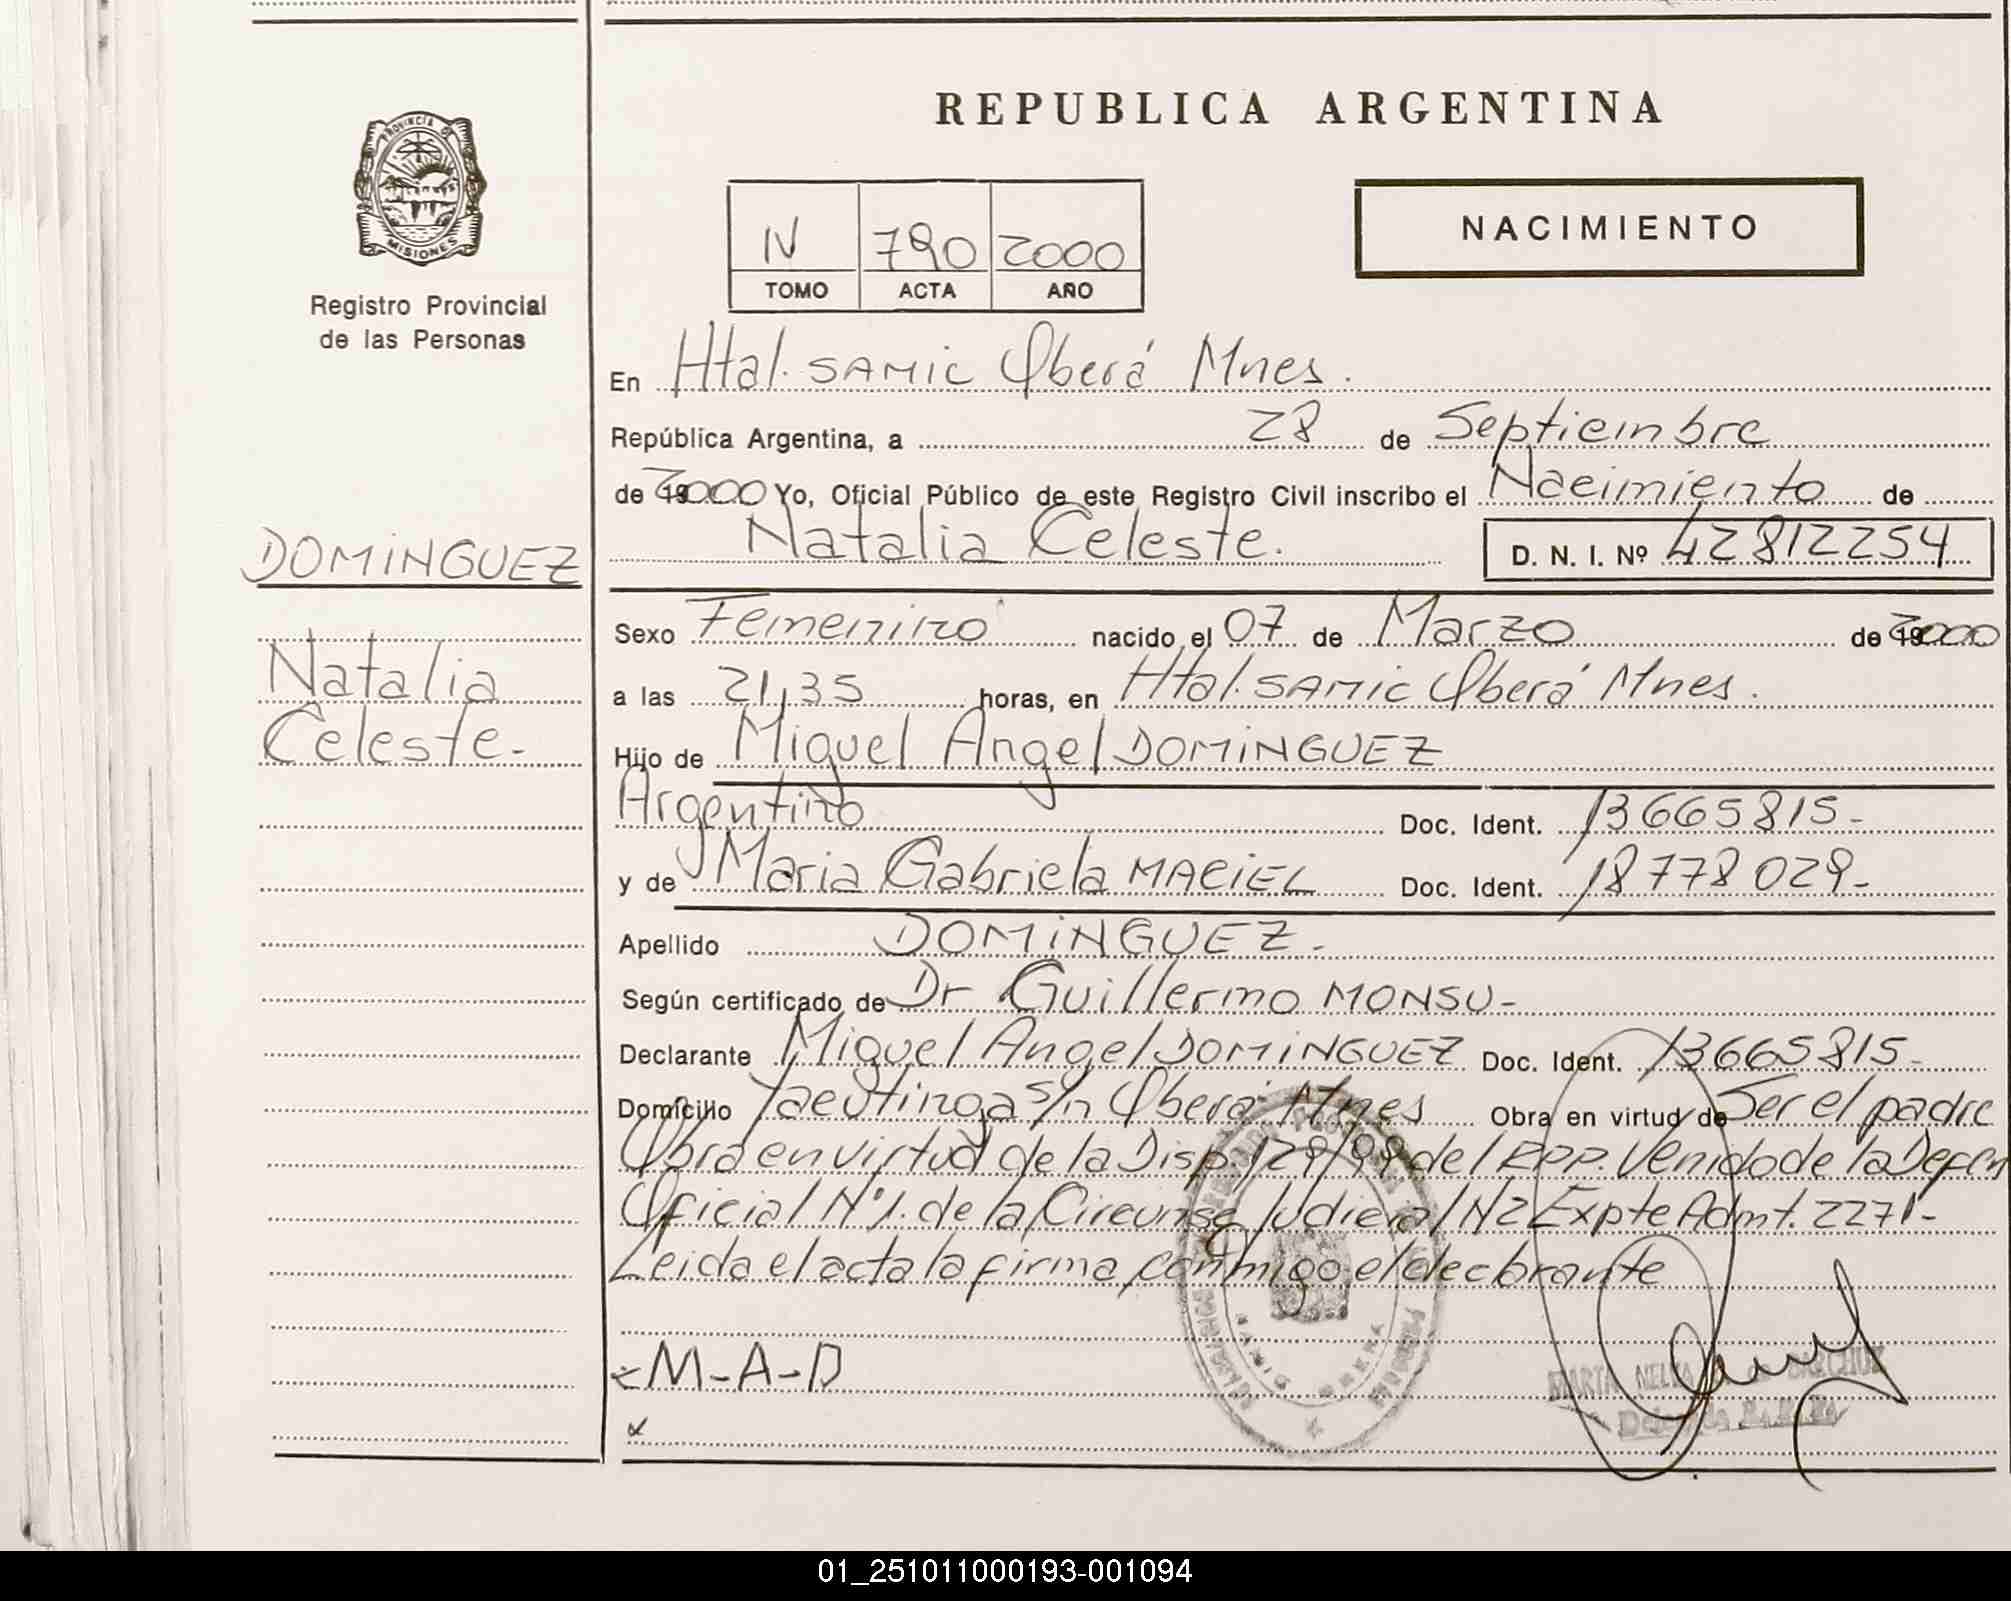 REPUBLICA ARGENTINA
PROVINCIA DE
MISIONES
Registro Provincial
de las Personas
NACIMIENTO
IV 790 2000
TOMO ACTA AÑO
En Htal. SAMIC Oberá Mnes.
República Argentina, a 28 de Septiembre
de 2000 Yo, Oficial Público de este Registro Civil inscribo el Nacimiento de
Natalia Celeste. D. N. I. Nº 42812254
DOMINGUEZ
Natalia
Celeste.-
Sexo Femenino nacido el 07 de Marzo de 2000
a las 21,35 horas, en Htal. SAMIC Oberá Mnes.
Hijo de Miguel Angel DOMINGUEZ
Argentino Doc. Ident. 13665815-
y de Maria Gabriela MACIEL Doc. Ident. 18778029-
Apellido DOMINGUEZ.-
Según certificado de Dr Guillermo MONSU-
Declarante Miguel Angel DOMINGUEZ Doc. Ident. 13665815-
Domicilio s/n Oberá Mnes Obra en virtud de Ser el padre
Obra en virtud de la Disp. 129/99 del RPP. Venido de la Defen
Oficial Nº1. de la Circunsc Judicial N2 Expte Admt. 2271-
Leida el acta la firma conmigo el declarante
M-A-D
MARTA
01_251011000193-001094